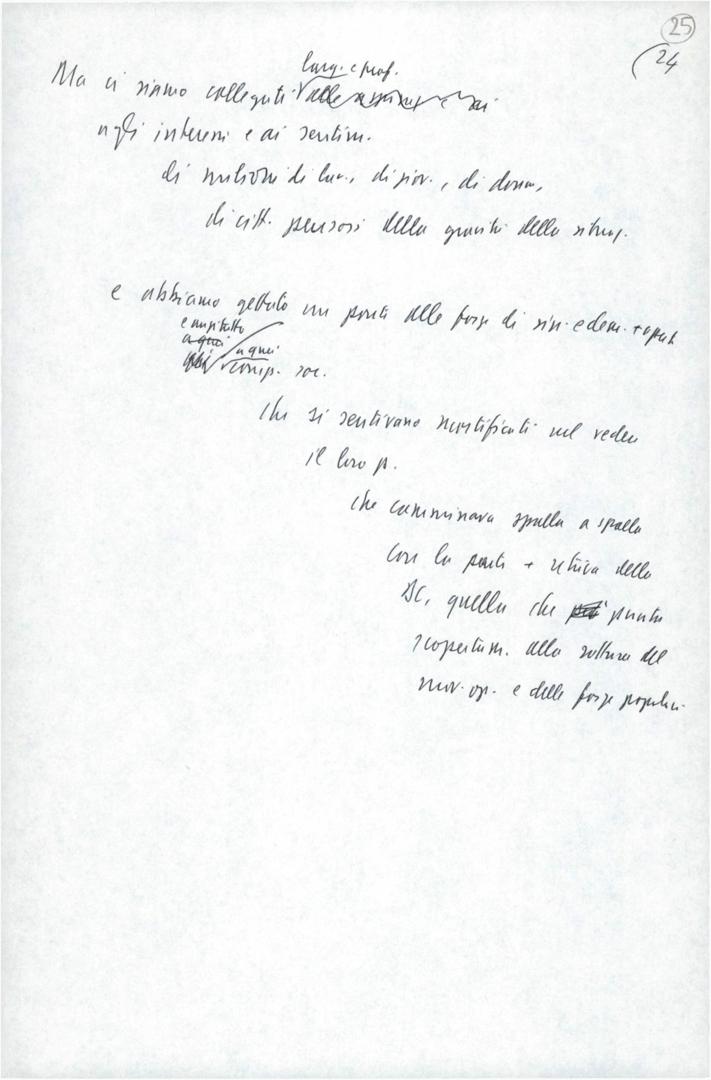 25
24
larg. e prof.
Ma ci siamo collegati
agli interessi e ai sentim.
di milioni di lav., di giov., di donne,
di citt. pensosi della gravità della situaz.
e abbiamo gettato un ponte alle forze di sin. e dem. + aperte
e anzitutto
a quei
a quei
comp. soc.
che si sentivano mortificati nel vedere
il loro p.
che camminava spalla a spalla
con la parte + retriva della
DC, quella che punta
scopertam. alla rottura del
mov. op. e delle forze popolari